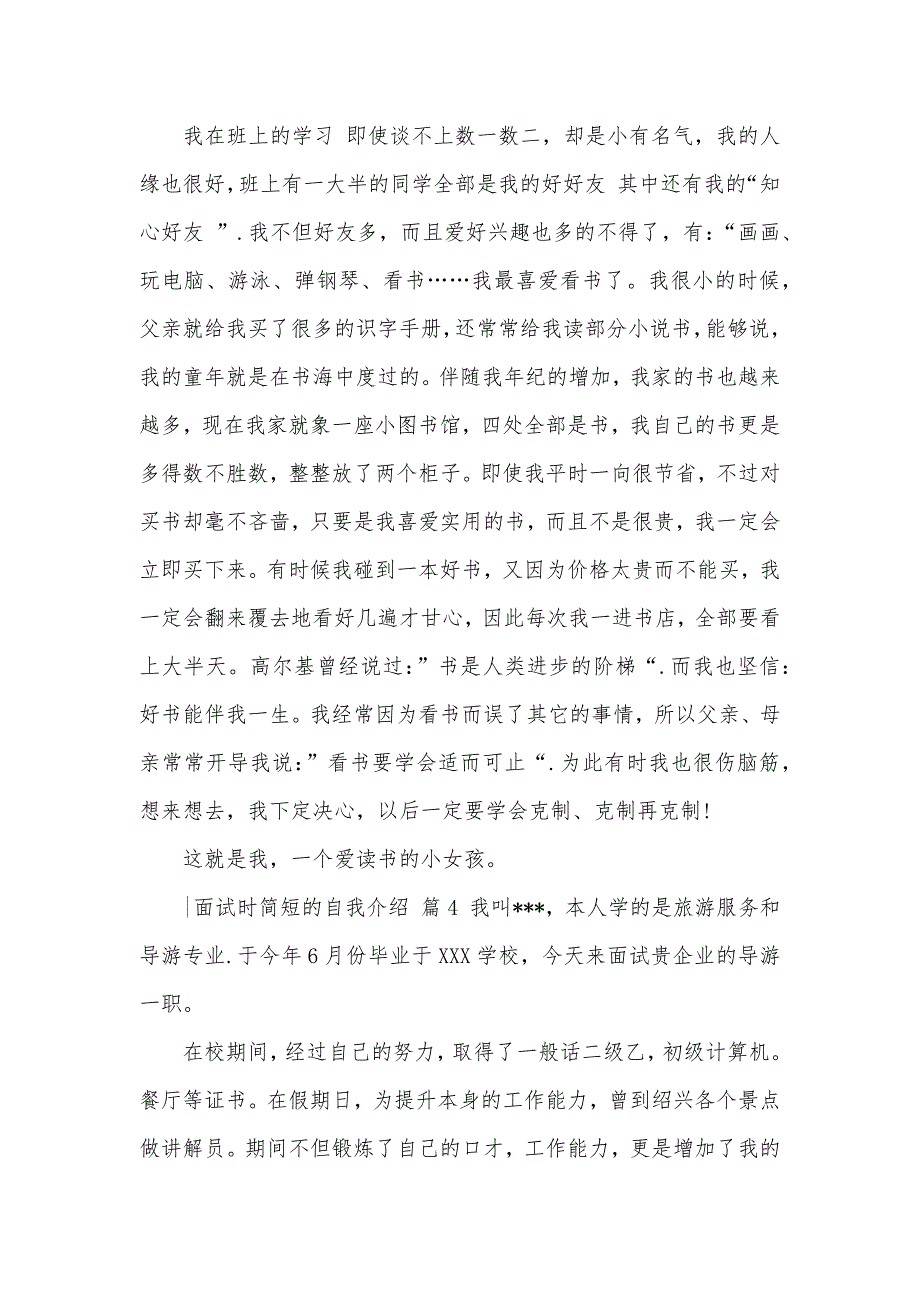 我在班上的学习 即使谈不上数一数二，却是小有名气，我的人
缘也很好，班上有一大半的同学全部是我的好好友 其中还有我的“知
心好友 ”.我不但好友多，而且爱好兴趣也多的不得了，有：“画画、
玩电脑、游泳、弹钢琴、看书……我最喜爱看书了。我很小的时候，
父亲就给我买了很多的识字手册，还常常给我读部分小说书，能够说，
我的童年就是在书海中度过的。伴随我年纪的增加，我家的书也越来
越多，现在我家就象一座小图书馆，四处全部是书，我自己的书更是
多得数不胜数，整整放了两个柜子。即使我平时一向很节省，不过对
买书却毫不吝啬，只要是我喜爱实用的书，而且不是很贵，我一定会
立即买下来。有时候我碰到一本好书，又因为价格太贵而不能买，我
一定会翻来覆去地看好几遍才甘心，因此每次我一进书店，全部要看
上大半天。高尔基曾经说过：”书是人类进步的阶梯“.而我也坚信：
好书能伴我一生。我经常因为看书而误了其它的事情，所以父亲、母
亲常常开导我说：”看书要学会适而可止“.为此有时我也很伤脑筋，
想来想去，我下定决心，以后一定要学会克制、克制再克制!
这就是我，一个爱读书的小女孩。
|面试时简短的自我介绍 篇4 我叫***，本人学的是旅游服务和
导游专业.于今年6月份毕业于XXX学校，今天来面试贵企业的导游
一职。
在校期间，经过自己的努力，取得了一般话二级乙，初级计算机。
餐厅等证书。在假期日，为提升本身的工作能力，曾到绍兴各个景点
做讲解员。期间不但锻炼了自己的口才，工作能力，更是增加了我的